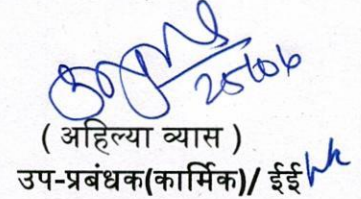 25/06
( अहिल्या व्यास )
उप-प्रबंधक(कार्मिक)/ ईई